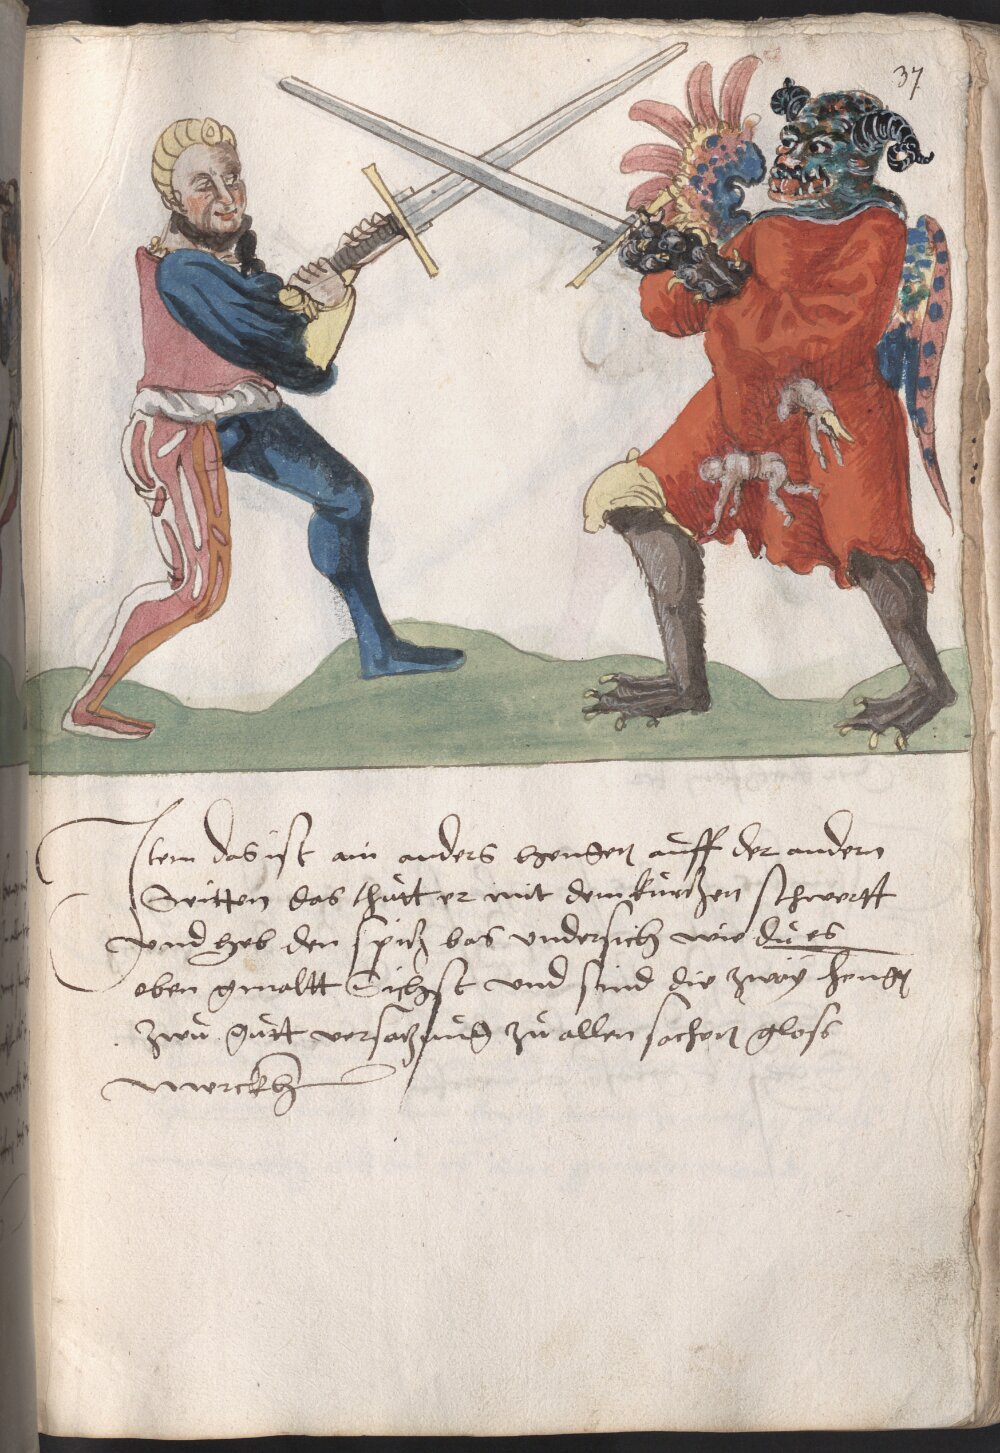 37
Item das ist ain anders hengen auff der andern
Seitten das thutt er mit dem kurtzen schwertt
vnd heb den spitz bas vndersich wie du es
oben gmaltt Sichst vnd sind die zway hengen
zwu gutt versatzung zu allen sachen gloss
Merckh